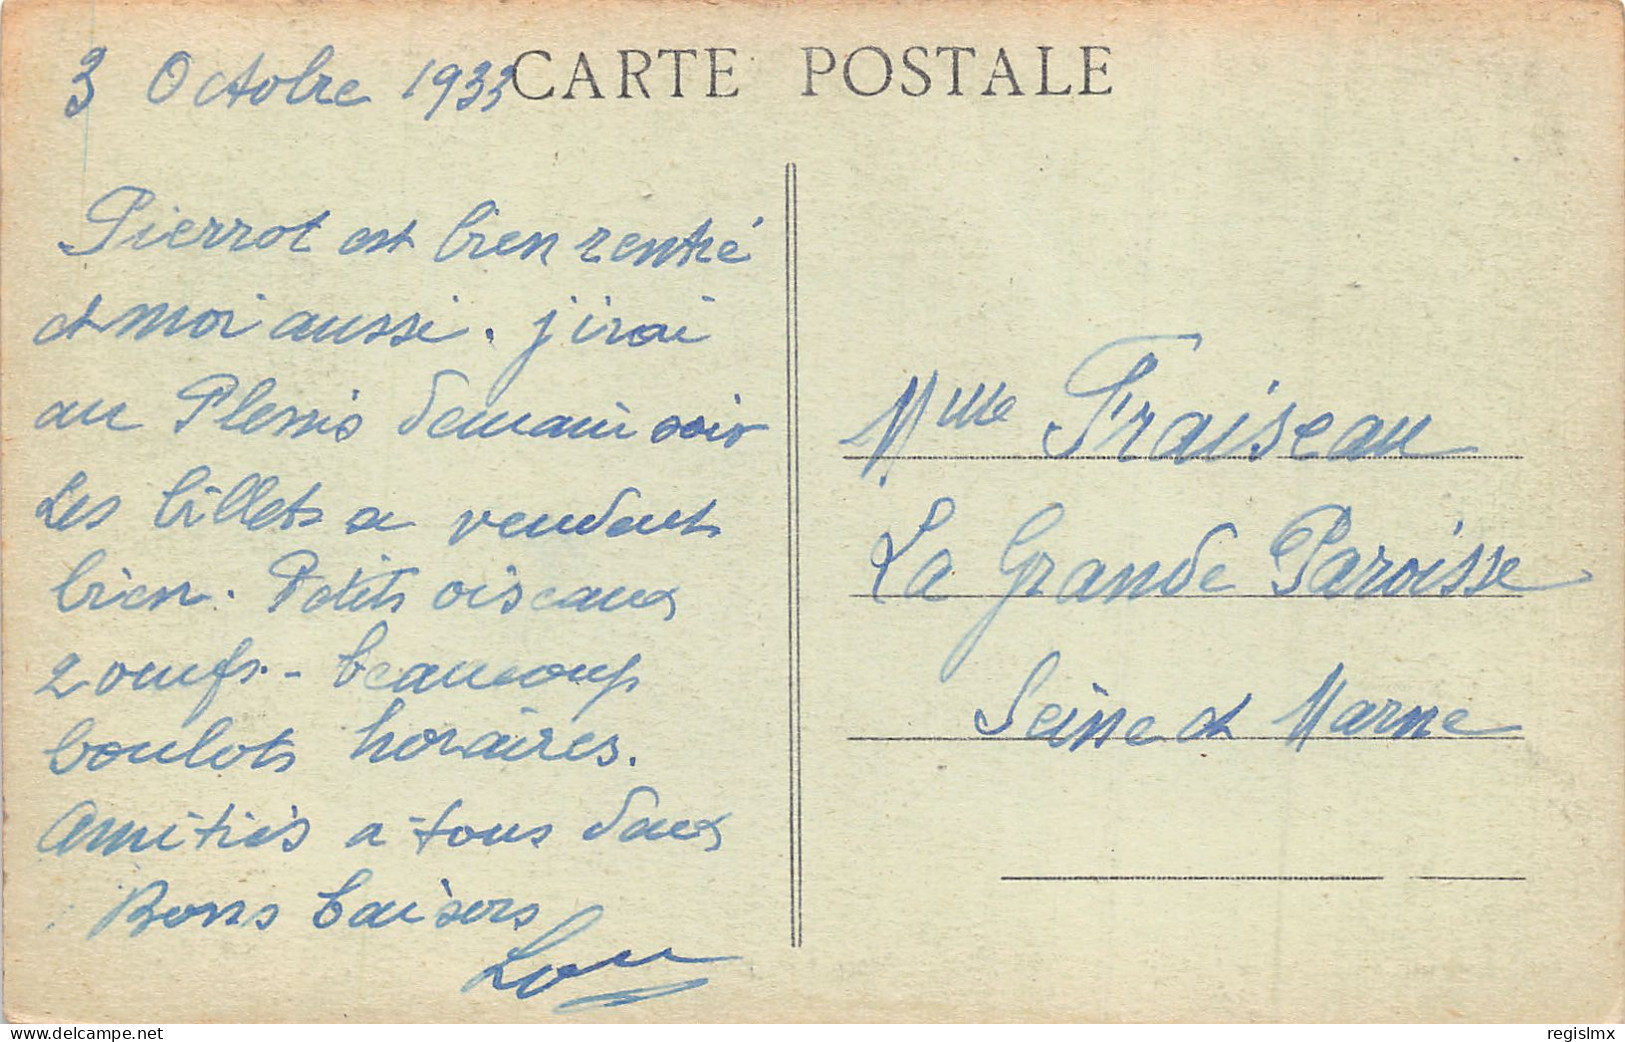 3 Octobre 1933
CARTE POSTALE
Pierrot est bien rentré
et moi aussi. j'irai
au Plessis demain soir
Les billets se vendent
bien. Petits oiseaux
2 oeufs. - beaucoup
boulots horaires.
Amitiés a tous deux
Bons baisers
Lou
Mme Fraiseau
La Grande Paroisse
Seine et Marne
delcampe.net
regislmx